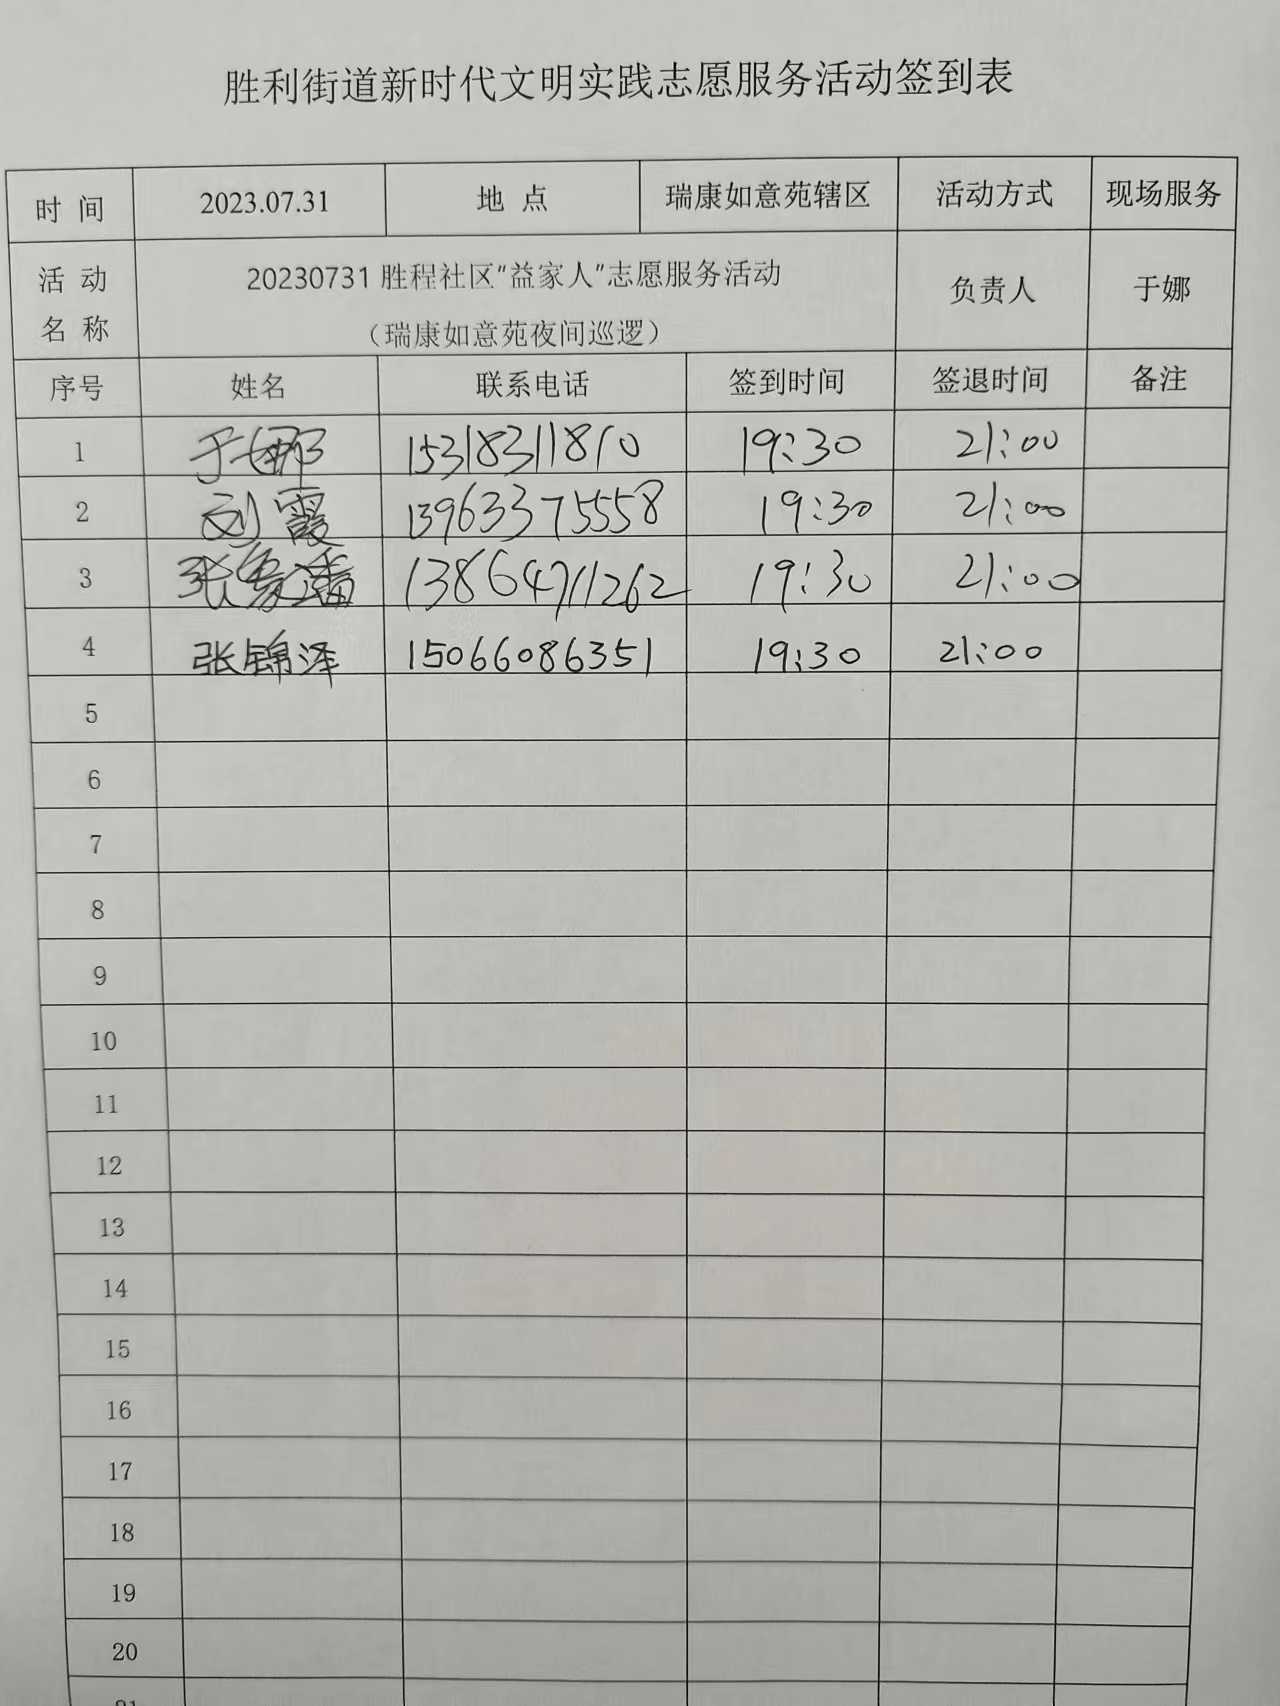 胜利街道新时代文明实践志愿服务活动签到表
时 间 2023.07.31 地 点 瑞康如意苑辖区 活动方式 现场服务
活 动 名 称 20230731 胜程社区“益家人”志愿服务活动 负责人 于娜
（瑞康如意苑夜间巡逻）
序号 姓名 联系电话 签到时间 签退时间 备注
1 于娜 15318311810 19:30 21:00
2 刘霞 13963375558 19:30 21:00
3 张 13864711262 19:30 21:00
4 张锦泽 15066086351 19:30 21:00
5
6
7
8
9
10
11
12
13
14
15
16
17
18
19
20